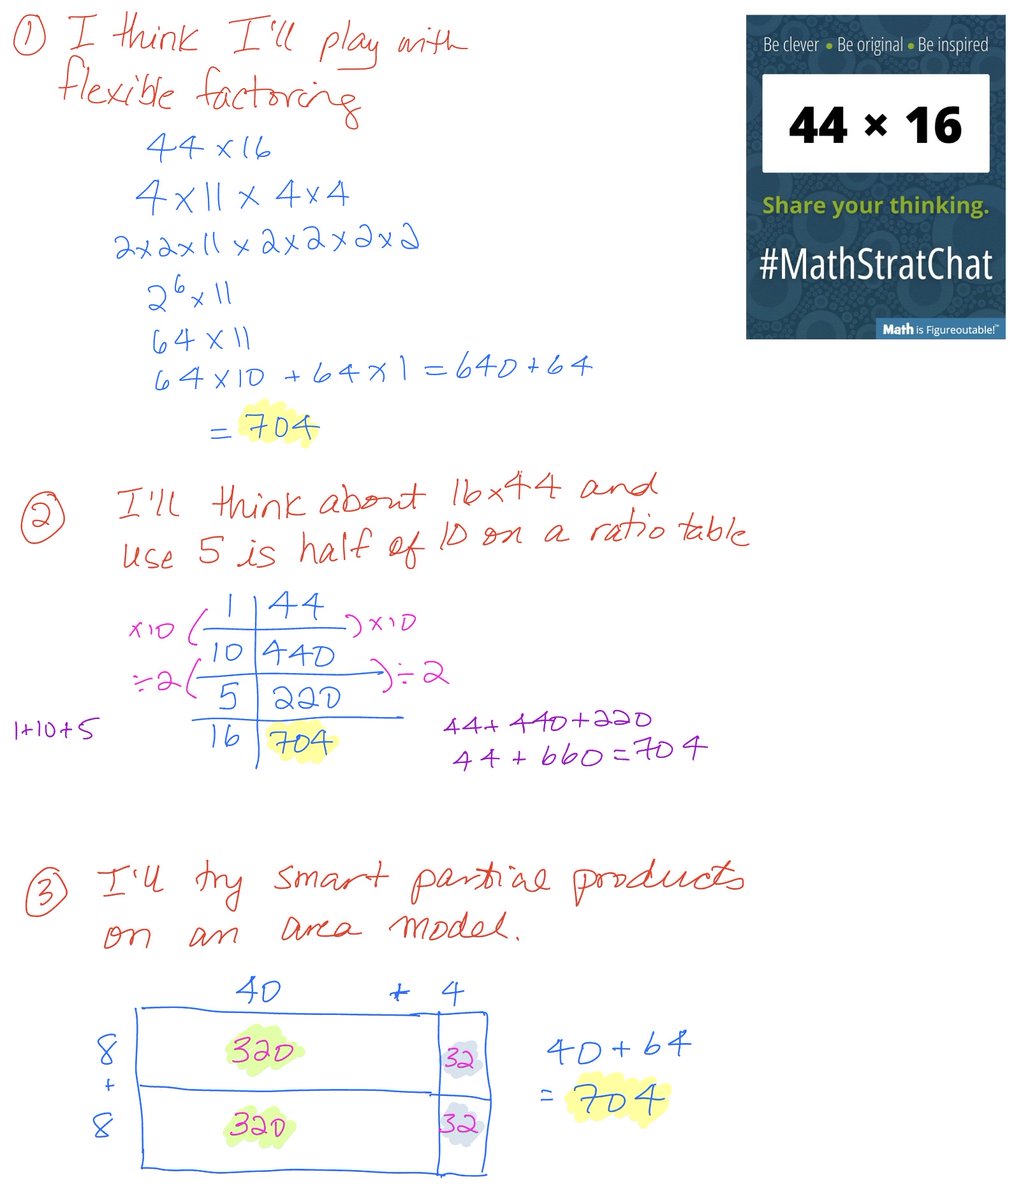 ① I think I'll play with
flexible factoring
44 × 16
4 × 11 × 4 × 4
2×2×11 × 2×2×2×2
2⁶ × 11
64 × 11
64 × 10 + 64 × 1 = 640 + 64
= 704
Be clever • Be original • Be inspired
44 × 16
Share your thinking.
#MathStratChat
Math is Figureoutable!™
② I'll think about 16×44 and
use 5 is half of 10 on a ratio table
1 | 44
×10 ( ) ×10
10 | 440
÷2 ( ) ÷2
5 | 220
16 | 704
1+10+5
44 + 440 + 220
44 + 660 = 704
③ I'll try smart partial products
on an area model.
40 + 4
8 320 32
+
8 320 32
40 + 64
= 704